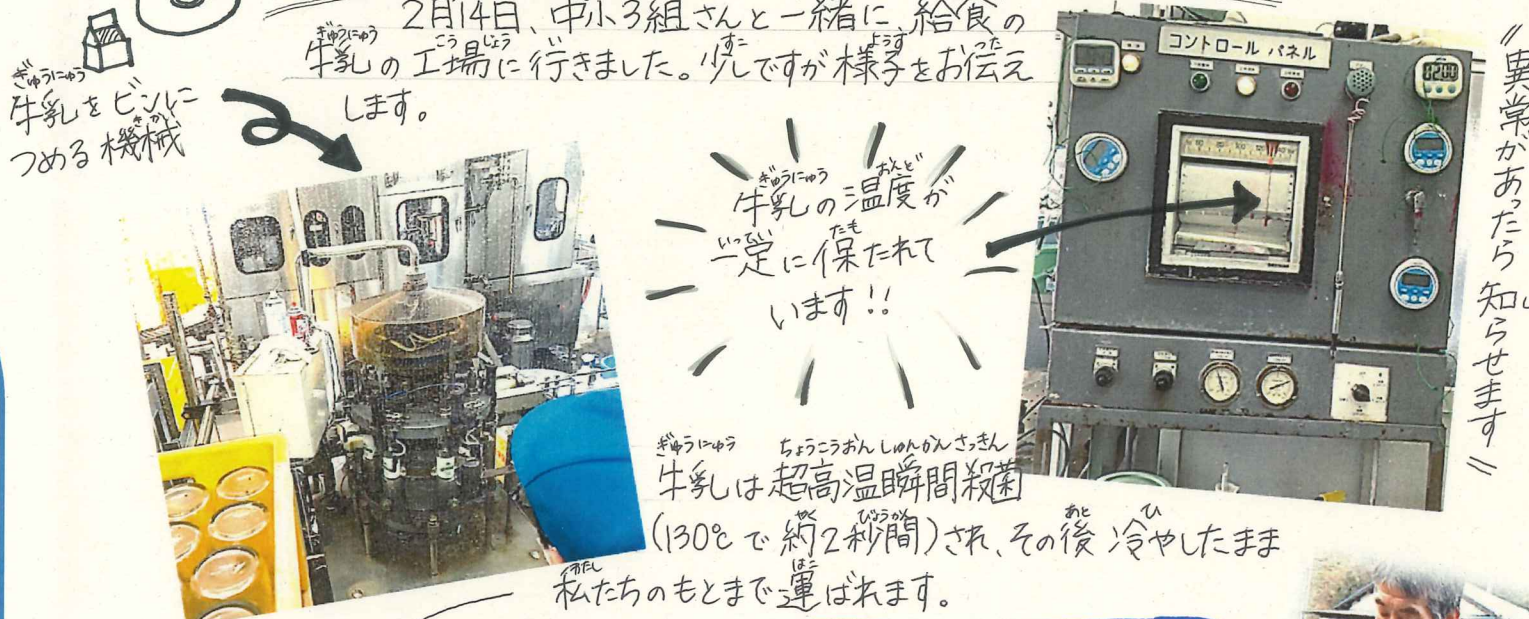 2月14日、中小3組さんと一緒に、給食の
牛乳の工場に行きました。少しですが様子をお伝え
します。
牛乳をビンに
つめる機械
牛乳の温度が
一定に保たれて
います!!
コントロール パネル
異常があったら知らせます
牛乳は超高温瞬間殺菌
(130℃で約2秒間)され、その後冷やしたまま
私たちのもとまで運ばれます。